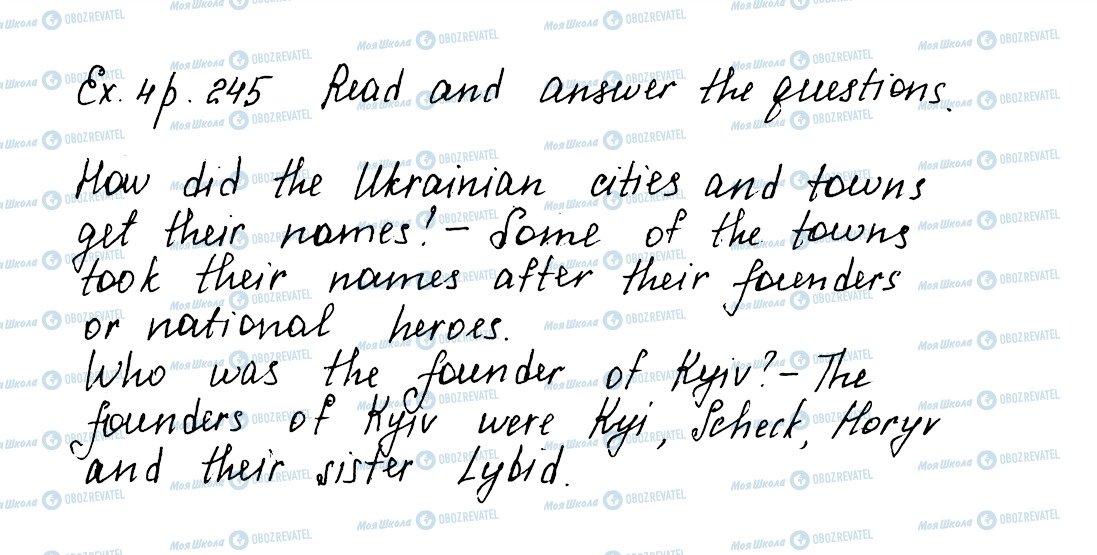 Ex. 4 p. 245 Read and answer the questions.
How did the Ukrainian cities and towns
get their names? – Some of the towns
took their names after their founders
or national heroes.
Who was the founder of Kyiv? – The
founders of Kyiv were Kyi, Scheck, Horyv
and their sister Lybid.